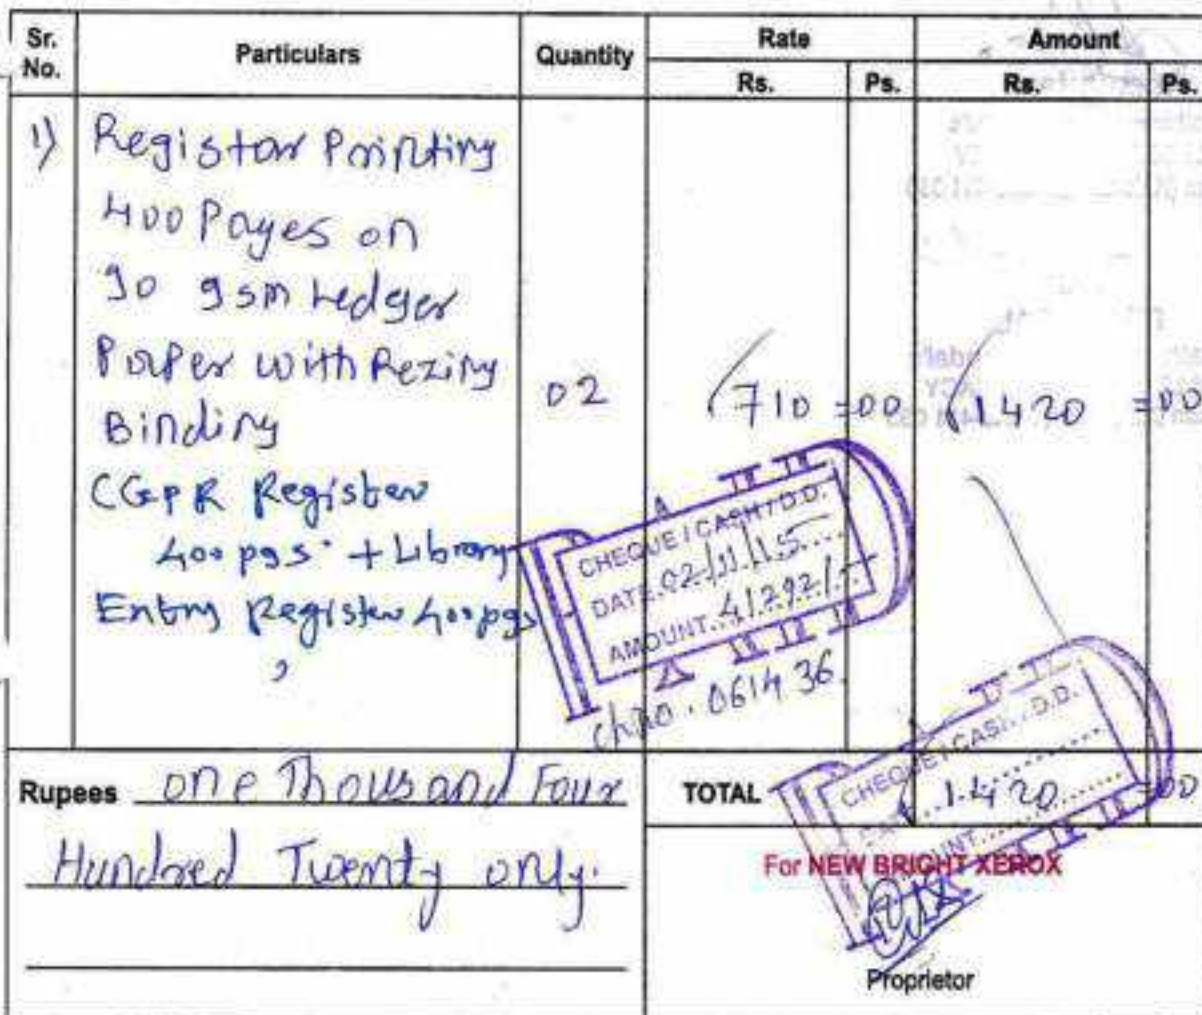 Sr. No. Particulars Quantity Rate Amount
Rs. Ps. Rs. Ps.
1) Register Printing
400 Pages on
90 gsm Ledger
Paper with Rezing 02 710 =00 1420 =00
Binding
CGPR Register
400 pgs. + Library
Entry Register 400 pgs
CHEQUE / CASH / D.D.
DATE. 02/11/15
AMOUNT. 41292/-
Ch no. 061436.
Rupees one Thousand Four
Hundred Twenty only.
TOTAL 1420 =00
CHEQUE / CASH / D.D.
For NEW BRIGHT XEROX
Proprietor